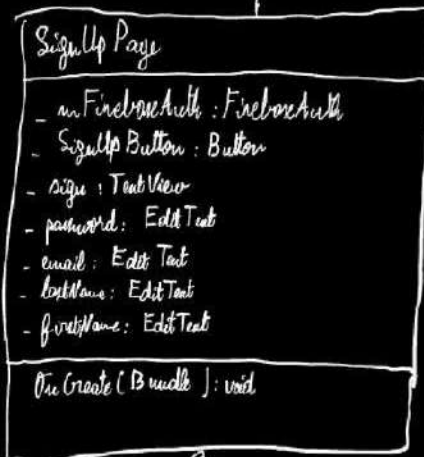 SignUp Page
- mFirebaseAuth : FirebaseAuth
- SignUpButton : Button
- sign : TextView
- password : EditText
- email : EditText
- lastName : EditText
- firstName : EditText
OnCreate(Bundle) : void